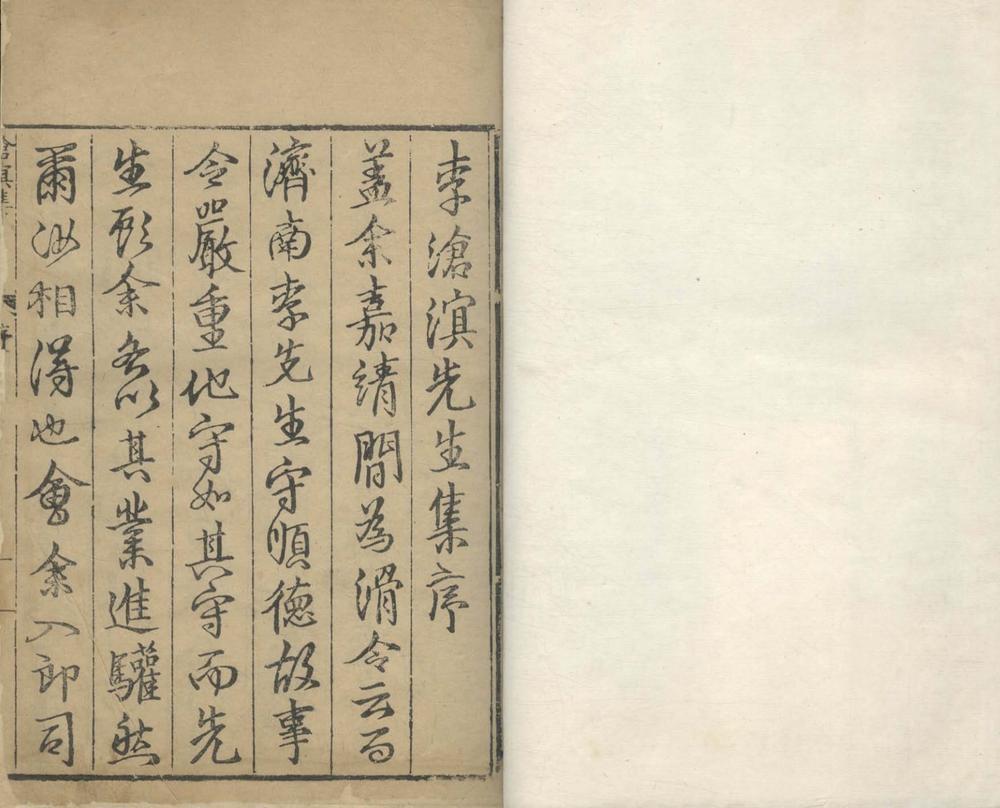 李滄溟先生集序
蓋余嘉靖間為滑令云而
濟南李先生守順德故事
令嚴重他守如其守而先
生顧余各以其業進驩然
爾汝相得也會余入郎司
滄溟集
序